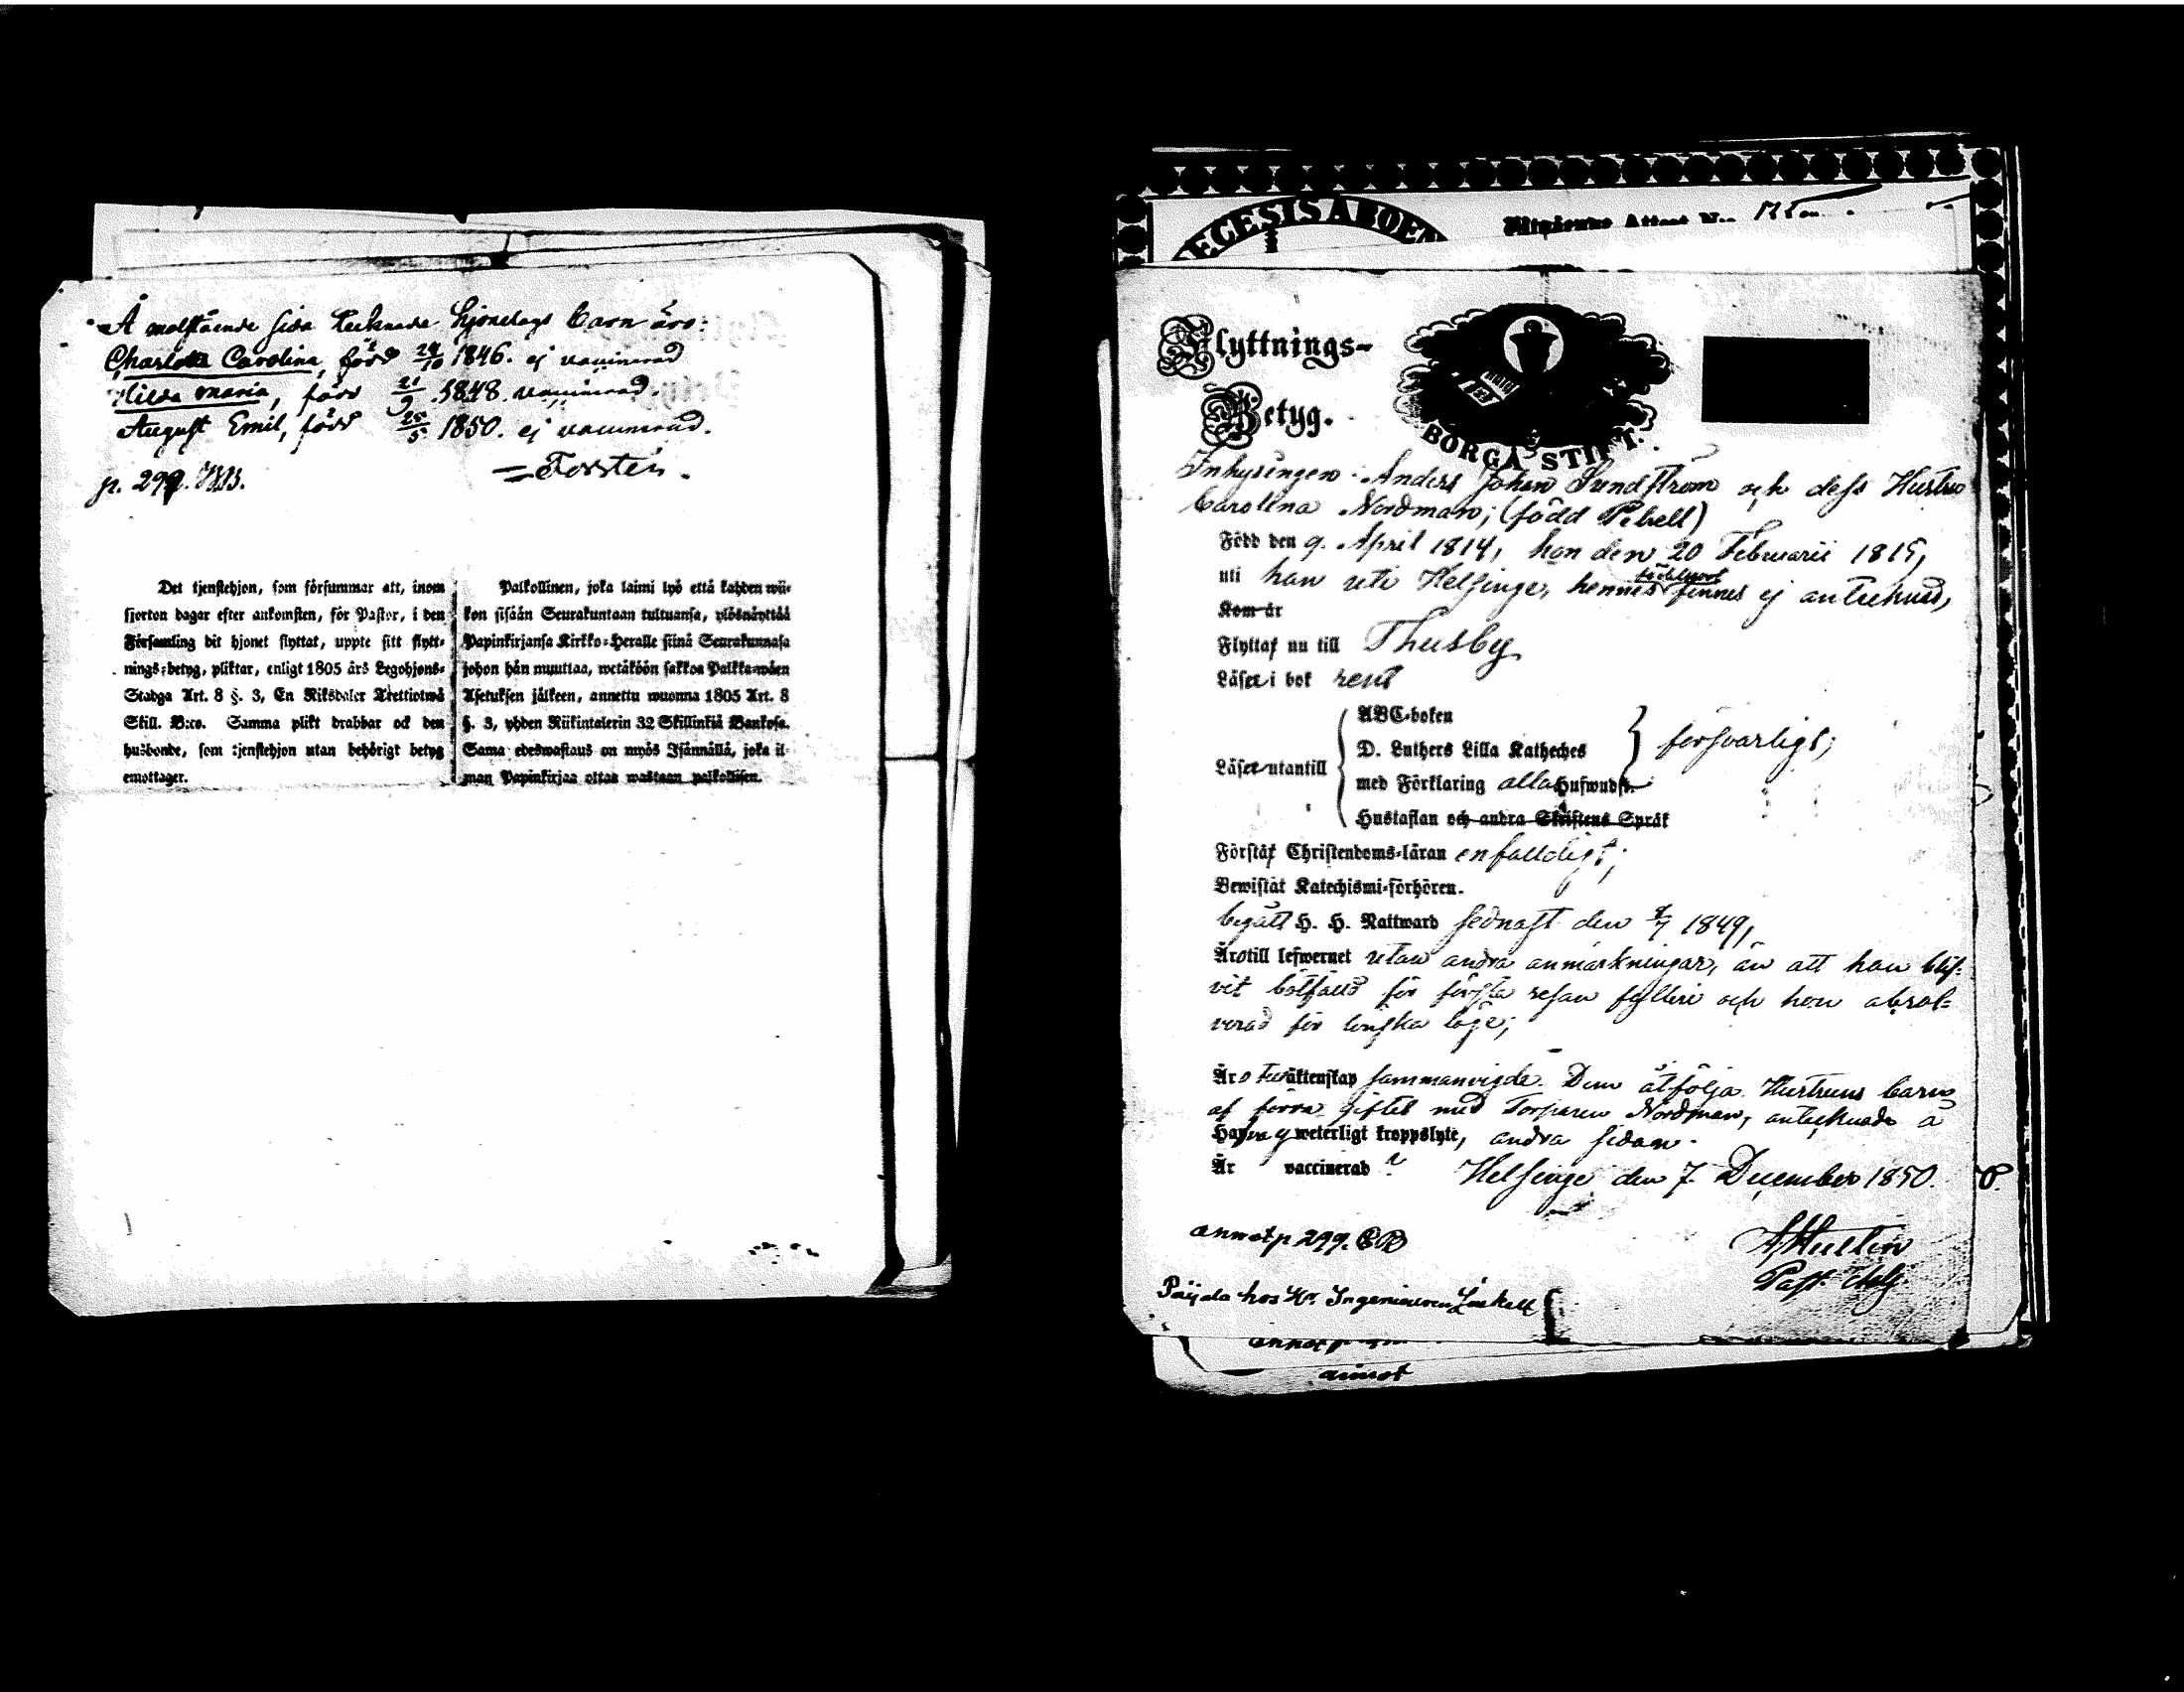 Å motstående sida tecknade Hjonelags Barn äro:
Charlotta Carolina, född 24/10 1846. ej vaccinerad
Hilda Maria, född 21/9 1848. vaccinerad.
August Emil, född 25/5 1850. ej vaccinerad.
p. 299.
Forstén.
Det tjenstehjon, som försummar att, inom
fjorton dagar efter ankomsten, för Pastor, i den
Församling dit hjonet flyttat, uppte sitt flytt-
nings-betyg, pliktar, enligt 1805 års Legohjons-
Stadga Art. 8 §. 3, En Riksdaler Trettiotwå
Skill. B:co. Samma plikt drabbar ock den
husbonde, som tjenstehjon utan behörigt betyg
emottager.
Palkollinen, joka laimi lyö että kahden wii-
kon sisään Seurakuntaan tultuansa, ylösnäyttää
Papinkirjansa Kirkko-Heralle siinä Seurakunnasa
johon hän muuttaa, wetäköön sakkoa Palkka-wäen
Asetuksen jälkeen, annettu wuonna 1805 Art. 8
§. 3, yhden Riikintalerin 32 Skillinkiä Bankosa.
Sama edeswastaus on myös Isännällä, joka il-
man Papinkirjaa ottaa wastaan palkollisen.
ECESIS ABOEN
Attest N:o
Flyttnings-
Betyg.
BORGÅ STIFT.
Inhysingen Anders Johan Sundström och dess Hustru
Carolina Nordman; (född Pehell)
Född den 9. April 1814, hon den 20 Februarii 1815,
uti han uti Helsinge, hennes födelseort finnes ej antecknad,
Kom år
Flyttar nu till Thusby
Läser i bok rent
ABC-boken
D. Luthers Lilla Katheches
Läser utantill
med Förklaring alla Hufwudst.
försvarligt;
Hustaflan och andra Skriftens Språk
Förstår Christendoms-läran enfaldigt;
Bewistat Katechismi-förhören.
begått H. H. Nattward sednast den 8/7 1849,
Äro till lefwernet utan andra anmärkningar, än att han blif-
vit bötfälld för första resan fylleri och hon absol-
verad för lönska läge;
Äro till äktenskap sammanvigda. Dem åtfölja Hustruns barn
af förra giftet med Torparen Nordman, antecknade å
Hafva ej weterligt kroppslyte, andra sidan.
Är vaccinerad
Helsinge den 7. December 1850.
annot p 299.
Past. Adj.
Päijala hos Hr Ingenieuren
annot p
annot